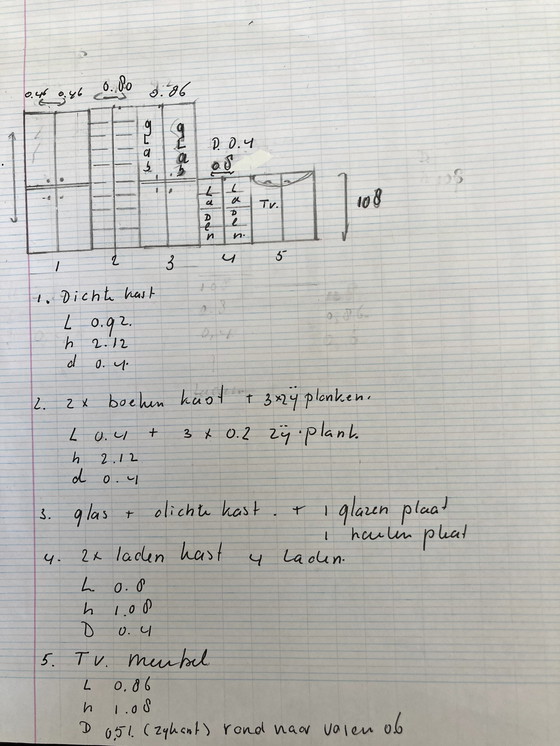 0.46 0.46 0.80 0.86
glas glas
D 0.4
0.8
Laden Laden
Tv.
108
1 2 3 4 5
1. Dichte kast
L 0.92.
h 2.12
d 0.4.
2. 2x boeken kast + 3x zij planken.
L 0.4 + 3 x 0.2 zij.plank.
h 2.12
d 0.4
3. glas + dichte kast. + 1 glazen plaat
1 houten plaat
4. 2x laden kast 4 laden.
L 0.8
h 1.08
D 0.4
5. Tv. meubel
L 0.86
h 1.08
D 0,51. (zijkant) rond naar voren